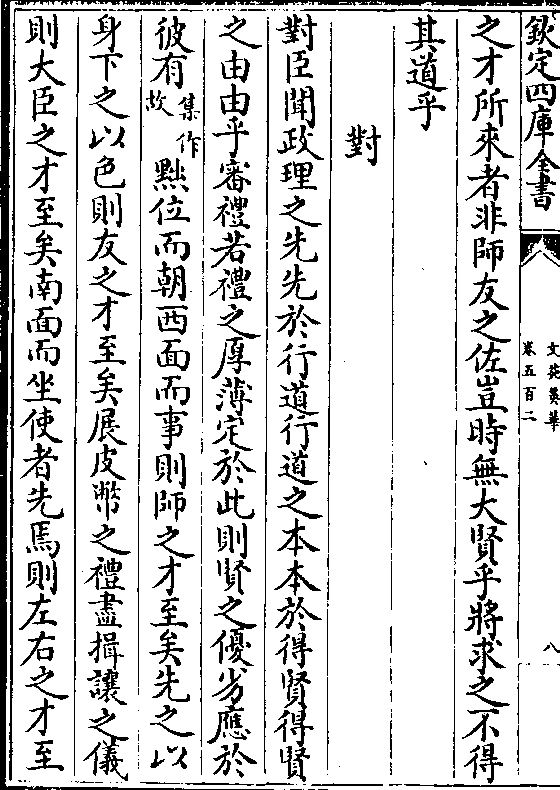 欽定四庫全書
文苑英華
卷五百二
八
之才所來者非師友之佐豈時無大賢乎將求之不得
其道乎
對
對臣聞政理之先先於行道行道之本本於得賢得賢
之由由乎審禮若禮之厚薄定於此則賢之優劣應於
彼有集作故黜位而朝西面而事則師之才至矣先之以
身下之以色則友之才至矣展皮幣之禮盡揖讓之儀
則大臣之才至矣南面而坐使者先焉則左右之才至